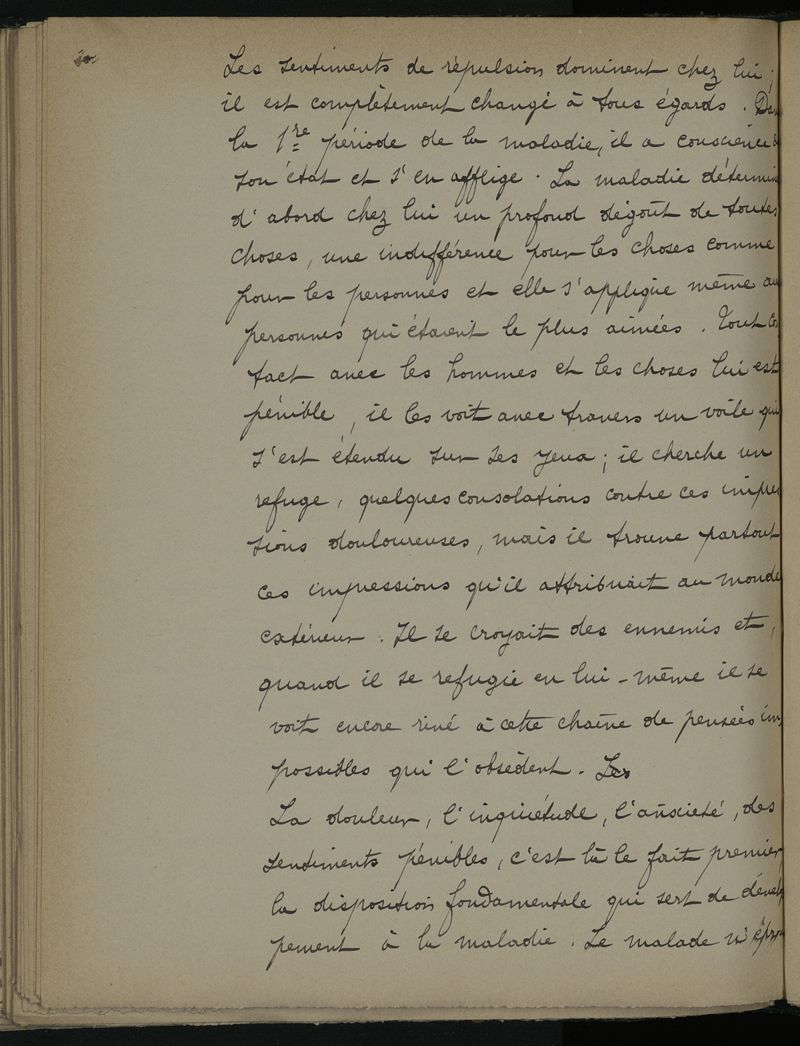 Les sentiments de répulsion dominent chez lui;
il est complètement changé à tous égards. Dan
la 1re période de la maladie, il a conscience d
son état et s'en afflige. La maladie détermin
d'abord chez lui un profond dégoût de toutes
choses, une indifférence pour les choses comme
pour les personnes et elle s'applique même au
personnes qui étaient le plus aimées. Tout con
tact avec les hommes et les choses lui est
pénible, il les voit avec travers un voile qui
s'est étendu sur ses yeux; il cherche un
refuge, quelques consolations contre ces impres
sions douloureuses, mais il trouve partout
ces impressions qu'il attribuait au monde
extérieur. Il se croyait des ennemis et,
quand il se refugie en lui-même il se
voit encore rivé à cette chaîne de pensées im
possibles qui l'obsèdent. Les
La douleur, l'inquiétude, l'anxieté, des
sentiments pénibles, c'est là le fait premier,
la disposition fondamentale qui sert de dévelop
pement à la maladie. Le malade n'épro